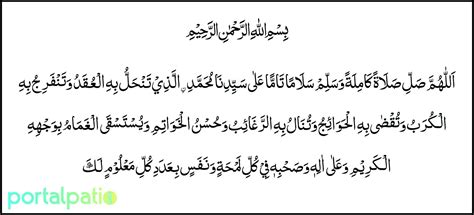 بِسْمِ اللهِ الرَّحْمٰنِ الرَّحِيْمِ
اَللّٰهُمَّ صَلِّ صَلَاةً كَامِلَةً وَسَلِّمْ سَلَامًا تَامًّا عَلٰى سَيِّدِنَا مُحَمَّدِ ࣙالَّذِيْ تَنْحَلُّ بِهِ الْعُقَدُ وَتَنْفَرِجُ بِهِ
الْكُرَبُ وَتُقْضٰى بِهِ الْحَوَائِجُ وَتُنَالُ بِهِ الرَّغَائِبُ وَحُسْنُ الْخَوَاتِمِ وَيُسْتَسْقَى الْغَمَامُ بِوَجْهِهِ
الْكَرِيْمِ وَعَلٰى اٰلِهِ وَصَحْبِهِ فِيْ كُلِّ لَمْحَةٍ وَنَفَسٍ بِعَدَدِ كُلِّ مَعْلُوْمٍ لَكَ
portalpati